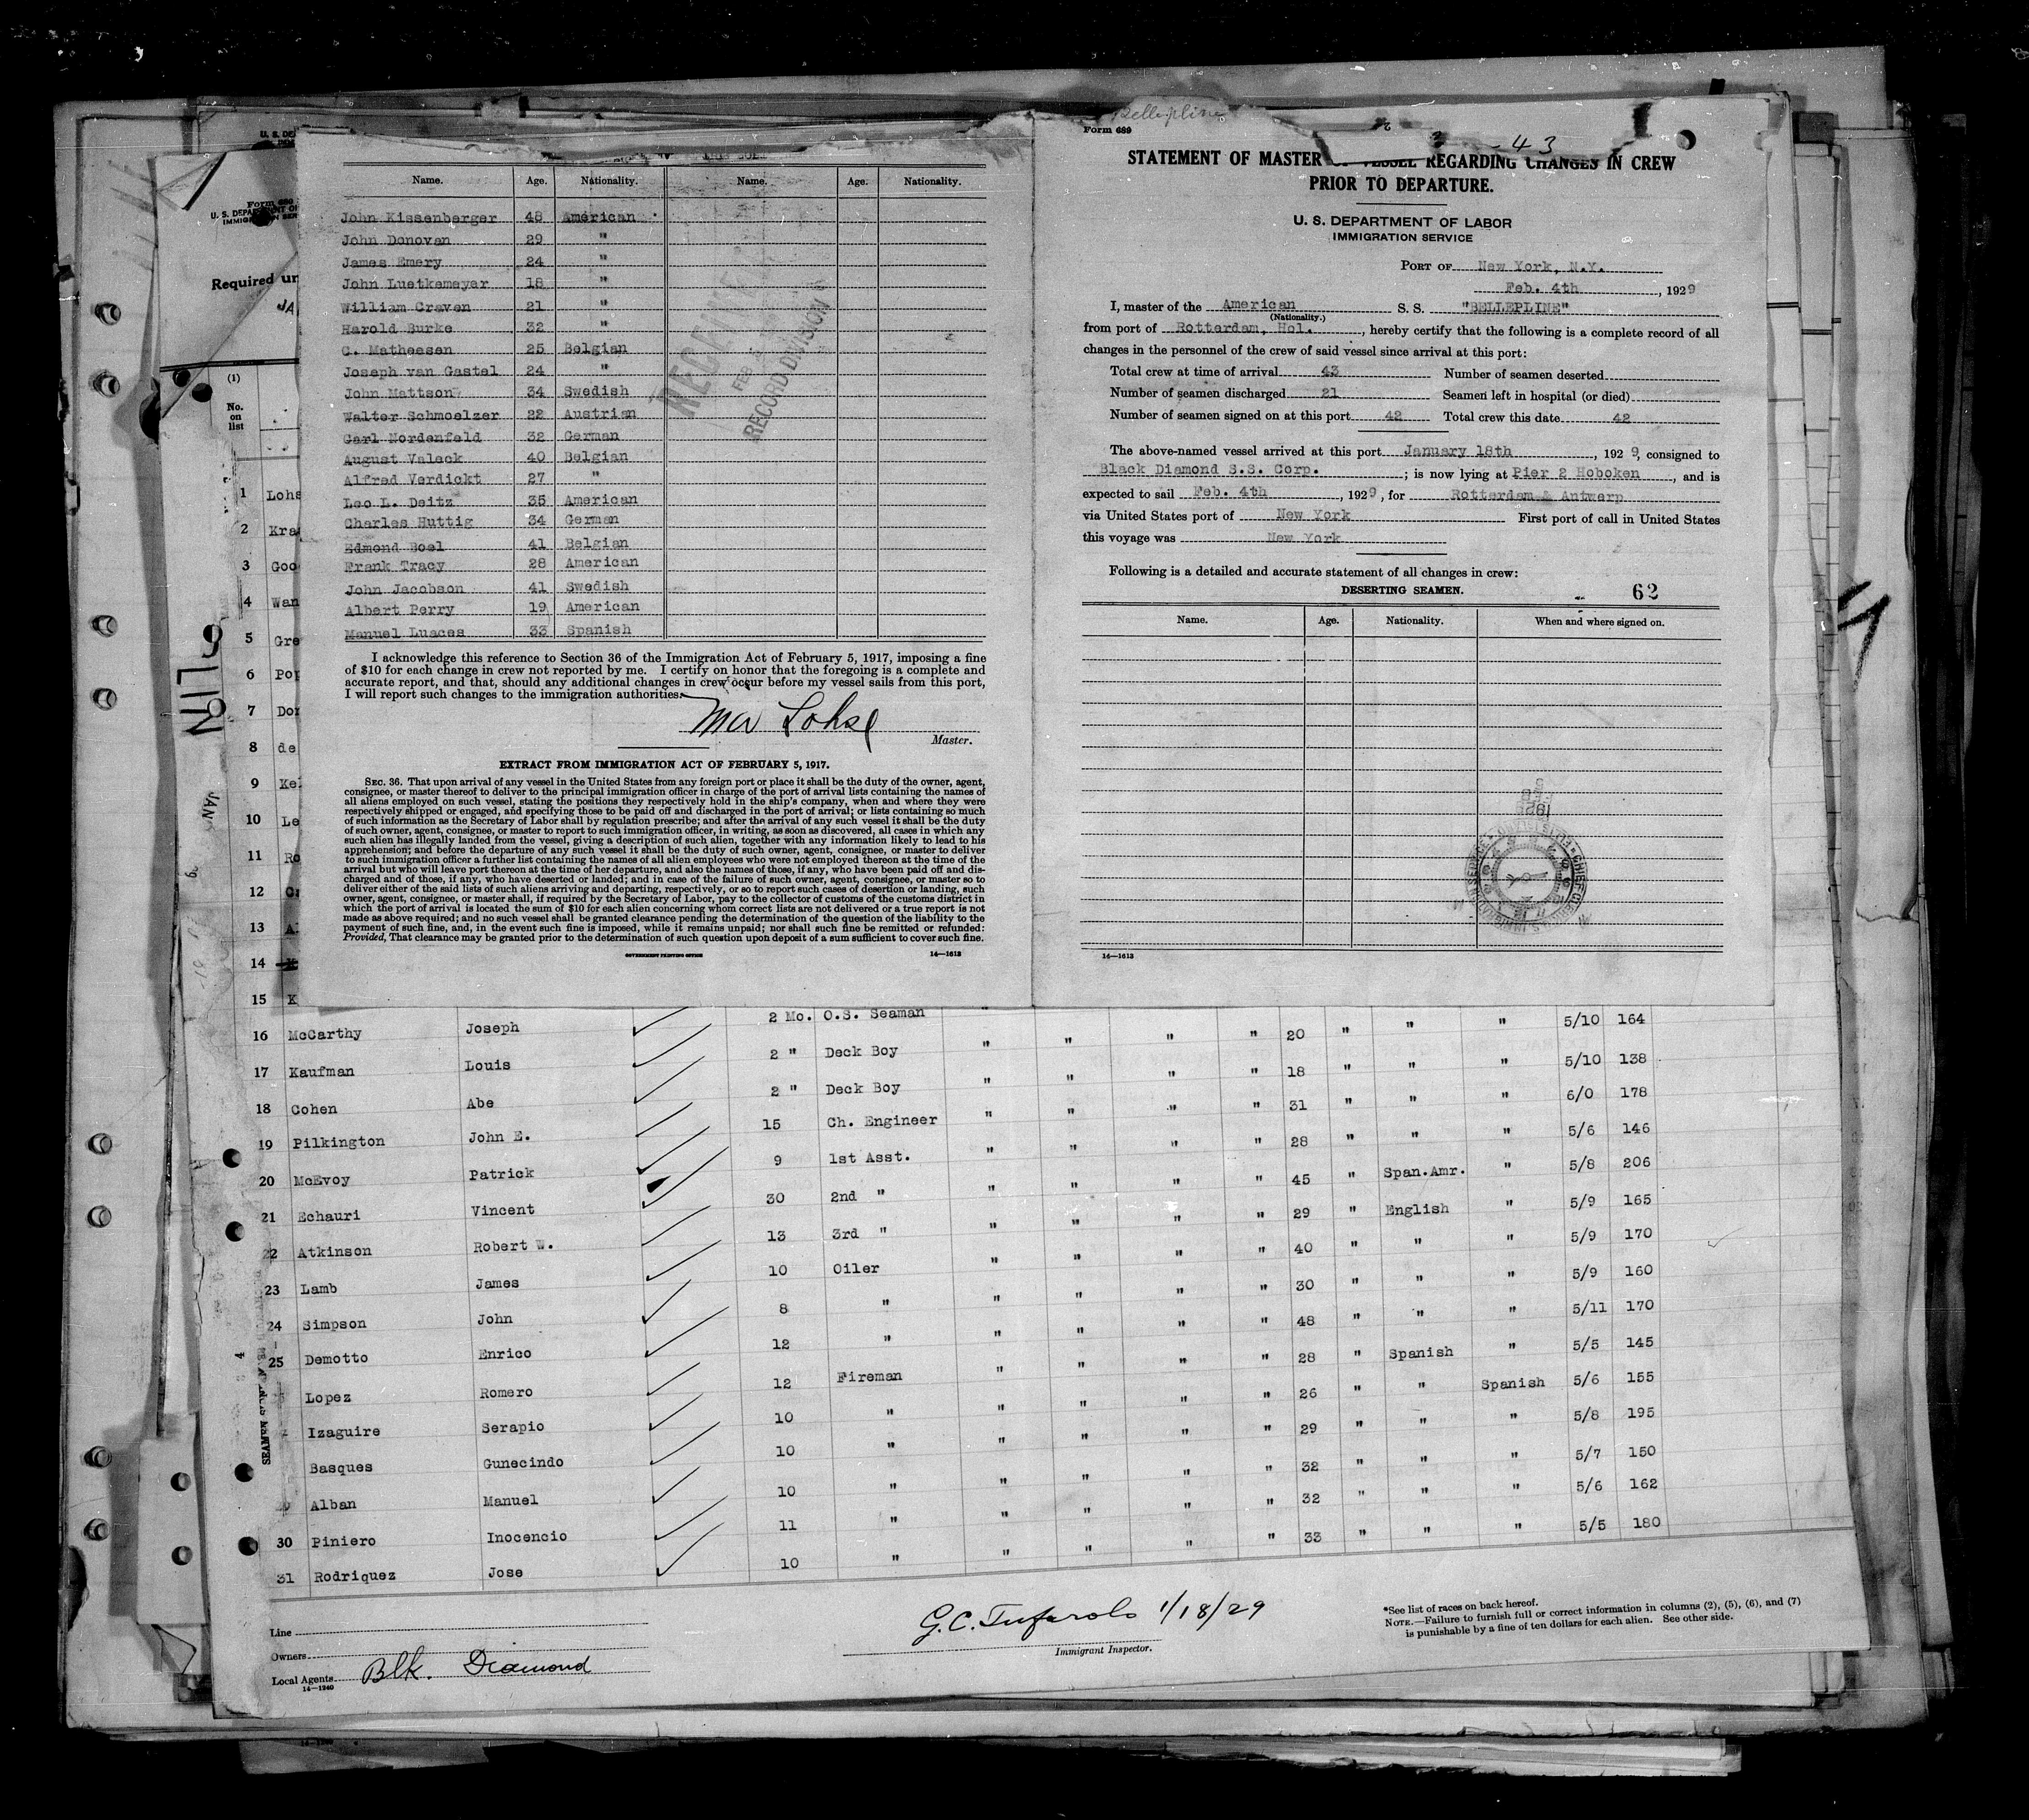 Name. Age. Nationality. Name. Age. Nationality.
John Kissenberger 48 American
John Donovan 29 "
James Emery 24 "
John Luetkemeyer 18 "
William Craven 21 "
Harold Burke 32 "
C. Matheesen 25 Belgian
Joseph van Gastel 24 "
John Mattson 34 Swedish
Walter Schmoelzer 22 Austrian
Carl Nordenfeld 32 German
August Valeck 40 Belgian
Alfred Verdickt 27 "
Leo L. Deitz 35 American
Charles Huttig 34 German
Edmond Boel 41 Belgian
Frank Tracy 28 American
John Jacobson 41 Swedish
Albert Perry 19 American
Manuel Luaces 33 Spanish
RECEIVED
FEB
RECORD DIVISION
I acknowledge this reference to Section 36 of the Immigration Act of February 5, 1917, imposing a fine
of $10 for each change in crew not reported by me. I certify on honor that the foregoing is a complete and
accurate report, and that, should any additional changes in crew occur before my vessel sails from this port,
I will report such changes to the immigration authorities.
Lohse
Master.
EXTRACT FROM IMMIGRATION ACT OF FEBRUARY 5, 1917.
SEC. 36. That upon arrival of any vessel in the United States from any foreign port or place it shall be the duty of the owner, agent,
consignee, or master thereof to deliver to the principal immigration officer in charge of the port of arrival lists containing the names of
all aliens employed on such vessel, stating the positions they respectively hold in the ship's company, when and where they were
respectively shipped or engaged, and specifying those to be paid off and discharged in the port of arrival; or lists containing so much
of such information as the Secretary of Labor shall by regulation prescribe; and after the arrival of any such vessel it shall be the duty
of such owner, agent, consignee, or master to report to such immigration officer, in writing, as soon as discovered, all cases in which any
such alien has illegally landed from the vessel, giving a description of such alien, together with any information likely to lead to his
apprehension; and before the departure of any such vessel it shall be the duty of such owner, agent, consignee, or master to deliver
to such immigration officer a further list containing the names of all alien employees who were not employed thereon at the time of the
arrival but who will leave port thereon at the time of her departure, and also the names of those, if any, who have been paid off and dis-
charged and of those, if any, who have deserted or landed; and in case of the failure of such owner, agent, consignee, or master so to
deliver either of the said lists of such aliens arriving and departing, respectively, or so to report such cases of desertion or landing, such
owner, agent, consignee, or master shall, if required by the Secretary of Labor, pay to the collector of customs of the customs district in
which the port of arrival is located the sum of $10 for each alien concerning whom correct lists are not delivered or a true report is not
made as above required; and no such vessel shall be granted clearance pending the determination of the question of the liability to the
payment of such fine, and, in the event such fine is imposed, while it remains unpaid; nor shall such fine be remitted or refunded:
Provided, That clearance may be granted prior to the determination of such question upon deposit of a sum sufficient to cover such fine.
GOVERNMENT PRINTING OFFICE 14—1613
Bellepline
Form 689
43
STATEMENT OF MASTER OF VESSEL REGARDING CHANGES IN CREW
PRIOR TO DEPARTURE.
U. S. DEPARTMENT OF LABOR
IMMIGRATION SERVICE
PORT OF New York, N.Y.
Feb. 4th, 1929
I, master of the American S. S. "BELLEPLINE"
(Nationality.)
from port of Rotterdam, Hol., hereby certify that the following is a complete record of all
changes in the personnel of the crew of said vessel since arrival at this port:
Total crew at time of arrival 43 Number of seamen deserted
Number of seamen discharged 21 Seamen left in hospital (or died)
Number of seamen signed on at this port 42 Total crew this date 42
The above-named vessel arrived at this port January 18th, 1929, consigned to
Black Diamond S.S. Corp.; is now lying at Pier 2 Hoboken, and is
expected to sail Feb. 4th, 1929, for Rotterdam & Antwerp
via United States port of New York First port of call in United States
this voyage was New York
Following is a detailed and accurate statement of all changes in crew:
DESERTING SEAMEN. 62
Name. Age. Nationality. When and where signed on.
14—1613
U. S. DE
Form 689
U. S. DEPARTMENT OF
IMMIGRATION SER
Required un
JA
(1)
No.
on
list
1 Lohs
2 Kra
3 Goo
4 Wan
5 Gre
6 Pop
7 Don
8 de
9 Kel
10 Le
11 Ro
12
13 A
14
15 K
JAN
16 McCarthy Joseph 2 Mo. O.S. Seaman " " " " 20 " " " 5/10 164
17 Kaufman Louis 2 " Deck Boy " " " " 18 " " " 5/10 138
18 Cohen Abe 2 " Deck Boy " " " " 31 " " " 6/0 178
19 Pilkington John E. 15 Ch. Engineer " " " " 28 " " " 5/6 146
20 McEvoy Patrick 9 1st Asst. " " " " 45 " Span.Amr. " 5/8 206
21 Echauri Vincent 30 2nd " " " " " 29 " English " 5/9 165
22 Atkinson Robert W. 13 3rd " " " " " 40 " " " 5/9 170
23 Lamb James 10 Oiler " " " " 30 " " " 5/9 160
24 Simpson John 8 " " " " " 48 " " " 5/11 170
25 Demotto Enrico 12 " " " " " 28 " Spanish " 5/5 145
Lopez Romero 12 Fireman " " " " 26 " " Spanish 5/6 155
Izaguire Serapio 10 " " " " " 29 " " " 5/8 195
Basques Gunecindo 10 " " " " " 32 " " " 5/7 150
Alban Manuel 10 " " " " " 32 " " " 5/6 162
30 Piniero Inocencio 11 " " " " " 33 " " " 5/5 180
31 Rodriquez Jose 10 " " " "
Line
Owners
Local Agents Blk. Diamond
14—1240
G. C. Tufarolo 1/18/29
Immigrant Inspector.
*See list of races on back hereof.
NOTE.—Failure to furnish full or correct information in columns (2), (5), (6), and (7)
is punishable by a fine of ten dollars for each alien. See other side.